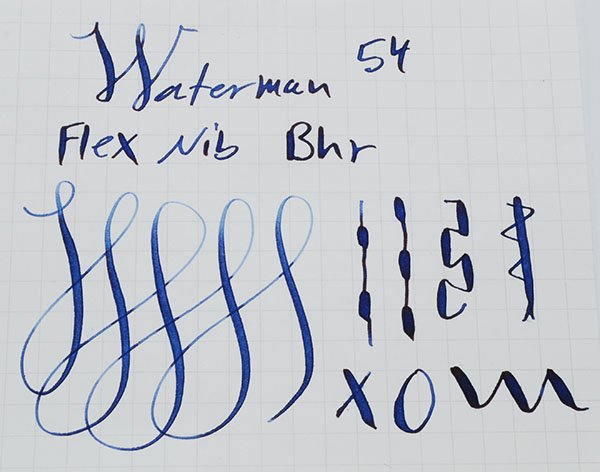 Waterman 54
Flex Nib Bhr
x o m